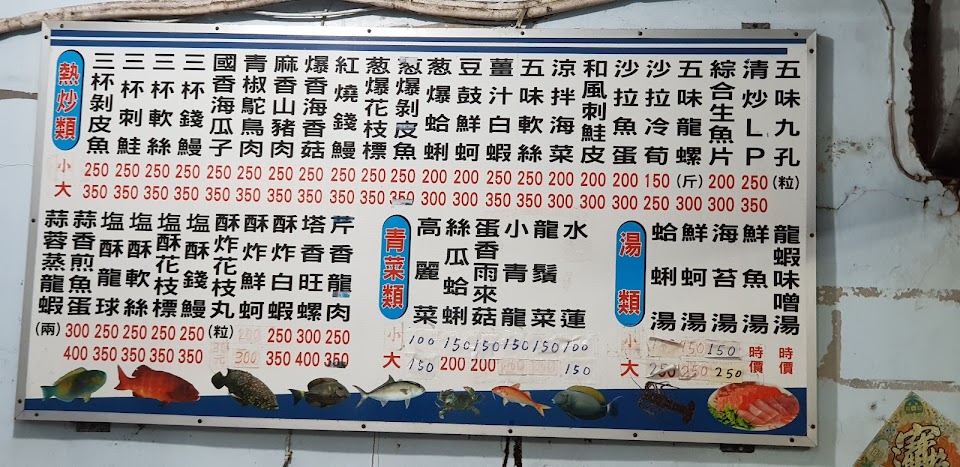 熱炒類
三杯剝皮魚
三杯刺鮭
三杯軟絲
三杯錢鰻
國香海瓜子
青椒鴕鳥肉
麻香山豬肉
爆香海香菇
紅燒錢鰻
葱爆花枝標
葱爆剝皮魚
葱爆蛤蜊
豆鼓鮮蚵
薑汁白蝦
五味軟絲
涼拌海菜
和風刺鮭皮
沙拉魚蛋
沙拉冷筍
五味龍螺
綜合生魚片
清炒LP
五味九孔
小 250 250 250 250 250 250 250 250 250 250 250 200 200 250 250 200 200 200 150 (斤) 200 250 (粒)
大 350 350 350 350 350 350 350 350 350 350 350 300 300 350 350 300 300 300 250 300 300 350
蒜蓉蒸龍蝦
蒜香煎魚蛋
塩酥龍球
塩酥軟絲
塩酥花枝標
塩酥錢鰻
酥炸花枝丸
酥炸鮮蚵
酥炸白蝦
塔香旺螺
芹香龍肉
(兩) 300 250 250 250 250 (粒) 250 250 300 250
400 350 350 350 350 300 350 400 350
青菜類
高麗菜
絲瓜蛤蜊
蛋香雨來菇
小青龍
龍鬚菜
水蓮
小 100 150 150 150 150 100
大 150 200 200 150
湯類
蛤蜊湯
鮮蚵湯
海苔湯
鮮魚湯
龍蝦味噌湯
小 150 150 時價 時價
大 250 250 250